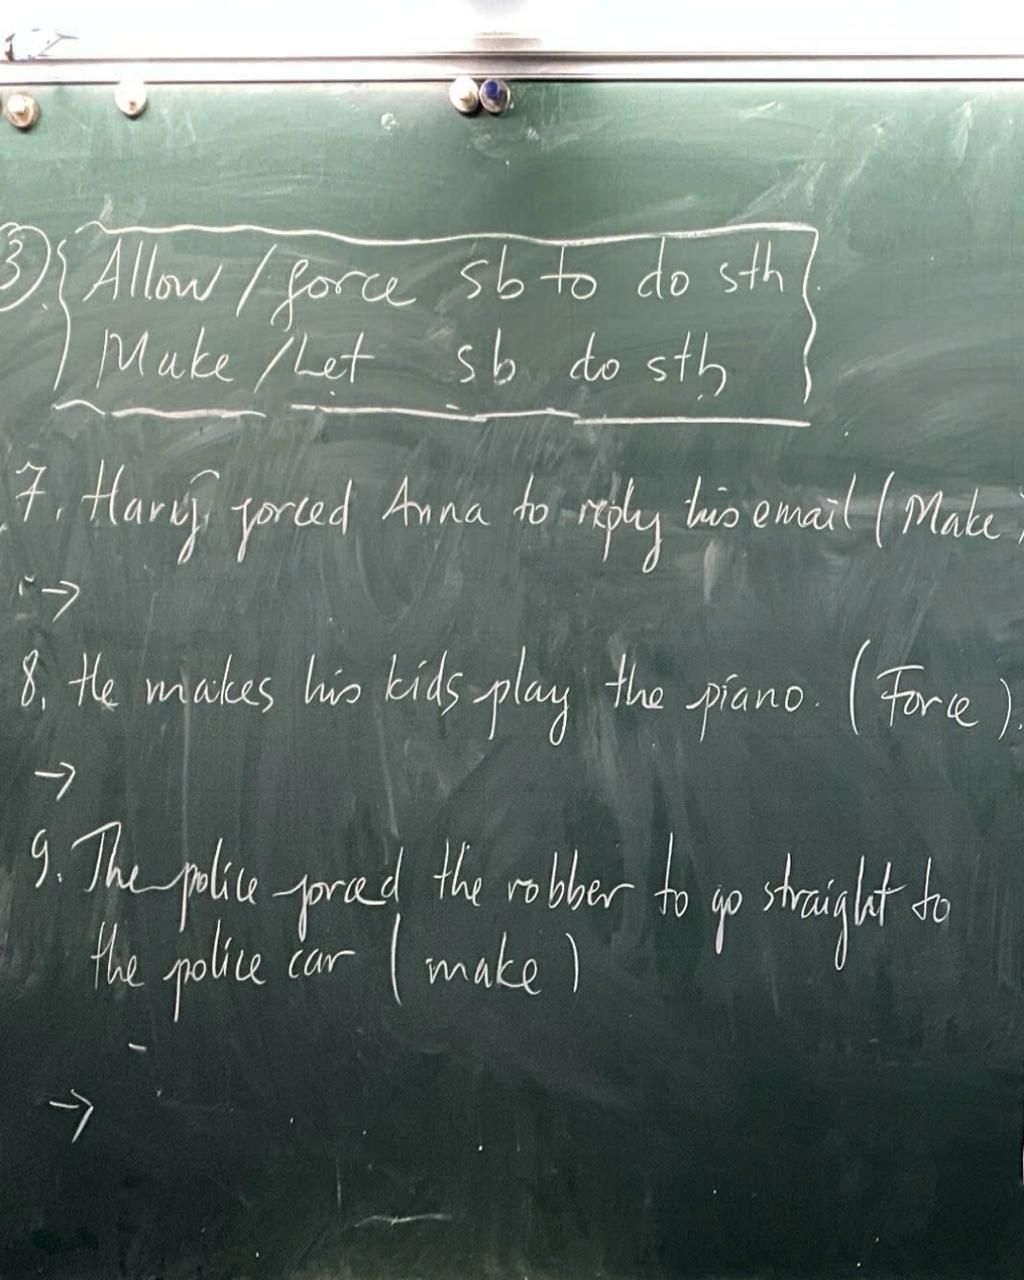 ③. Allow / force sb to do sth
Make / Let sb do sth
7. Harry forced Anna to reply his email (Make)
→
8. He makes his kids play the piano. (Force).
→
9. The police forced the robber to go straight to
the police car (make)
→